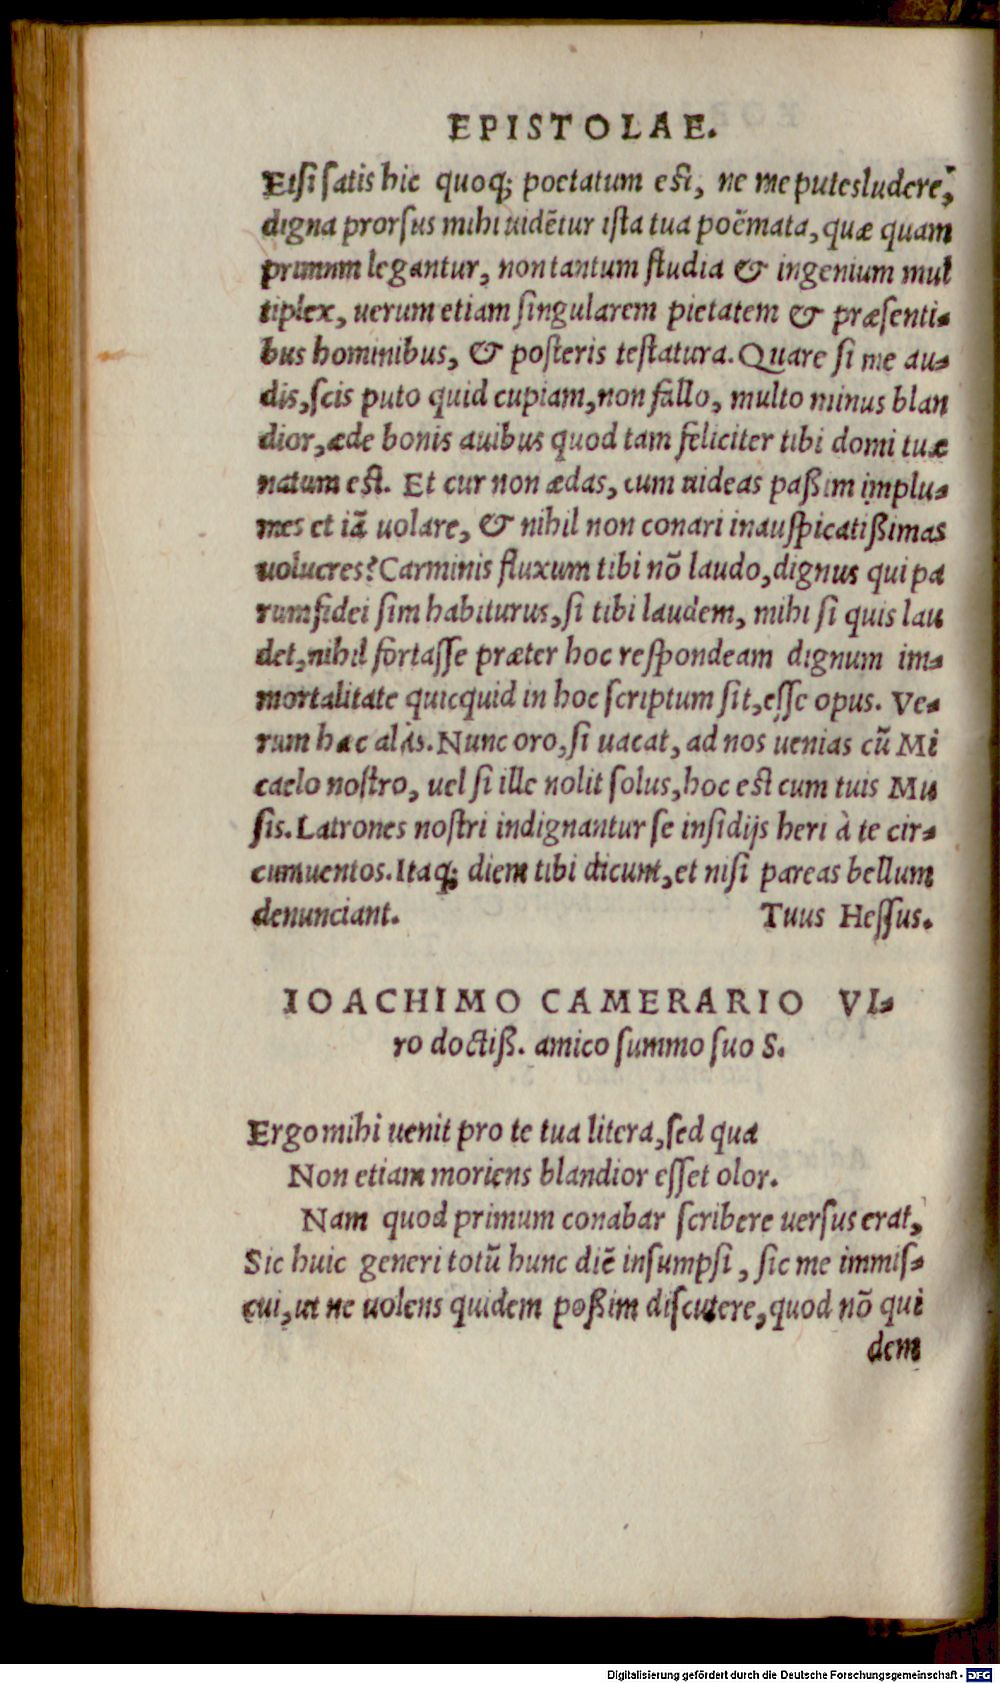 EPISTOLAE.
Etsi ſatis hic quoq; poetatum eſt, ne me putes ludere,
digna prorſus mihi uidẽtur iſta tua poëmata, quæ quam
primum legantur, non tantum ſtudia & ingenium mul
tiplex, uerum etiam ſingularem pietatem & præſenti-
bus hominibus, & poſteris teſtatura. Quare ſi me au-
dis, ſcis puto quid cupiam, non fallo, multo minus blan
dior, æde bonis auibus quod tam feliciter tibi domi tuæ
natum eſt. Et cur non ædas, cum uideas paßim implu-
mes et iã uolare, & nihil non conari inauſpicatißimas
uolucres? Carminis fluxum tibi nõ laudo, dignus qui pa
rum fidei ſim habiturus, ſi tibi laudem, mihi ſi quis lau
det, nihil fortaſſe præter hoc reſpondeam dignum im-
mortalitate quicquid in hoc ſcriptum ſit, eſſe opus. Ve-
rum hæc aliàs. Nunc oro, ſi uacat, ad nos uenias cũ Mi
caelo noſtro, uel ſi ille nolit ſolus, hoc eſt cum tuis Mu
ſis. Latrones noſtri indignantur ſe inſidijs heri à te cir-
cumuentos. Itaq; diem tibi dicunt, et niſi pareas bellum
denunciant. Tuus Heſſus.
IOACHIMO CAMERARIO VI-
ro doctiß. amico ſummo ſuo S.
Ergo mihi uenit pro te tua litera, ſed qua
Non etiam moriens blandior eſſet olor.
Nam quod primum conabar ſcribere uerſus erat,
Sic huic generi totũ hunc diẽ inſumpſi, ſic me immiſ-
cui, ut ne uolens quidem poßim diſcutere, quod nõ qui
dem
Digitalisierung gefördert durch die Deutsche Forschungsgemeinschaft - DFG